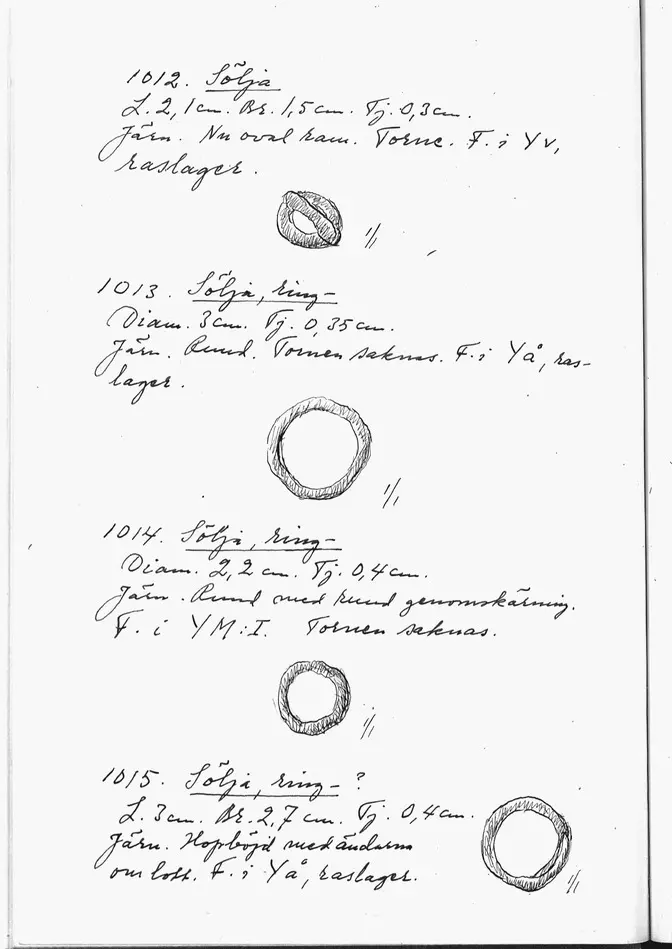 1012. Sölja
L. 2,1 cm. Br. 1,5 cm. Tj. 0,3 cm.
Järn. Nu oval ram. Torne. F. i Yv,
raslager.
1/1
1013. Sölja, ring-
Diam. 3 cm. Tj. 0,35 cm.
Järn. Rund. Tornen saknas. F. i Yå, ras-
lager.
1/1
1014. Sölja, ring-
Diam. 2,2 cm. Tj. 0,4 cm.
Järn. Rund med rund genomskärning.
F. i YM:I. Tornen saknas.
1/1
1015. Sölja, ring- ?
L. 3 cm. Br. 2,7 cm. Tj. 0,4 cm.
Järn. Hopböjd med ändarna
om lott. F. i Yå, raslager.
1/1